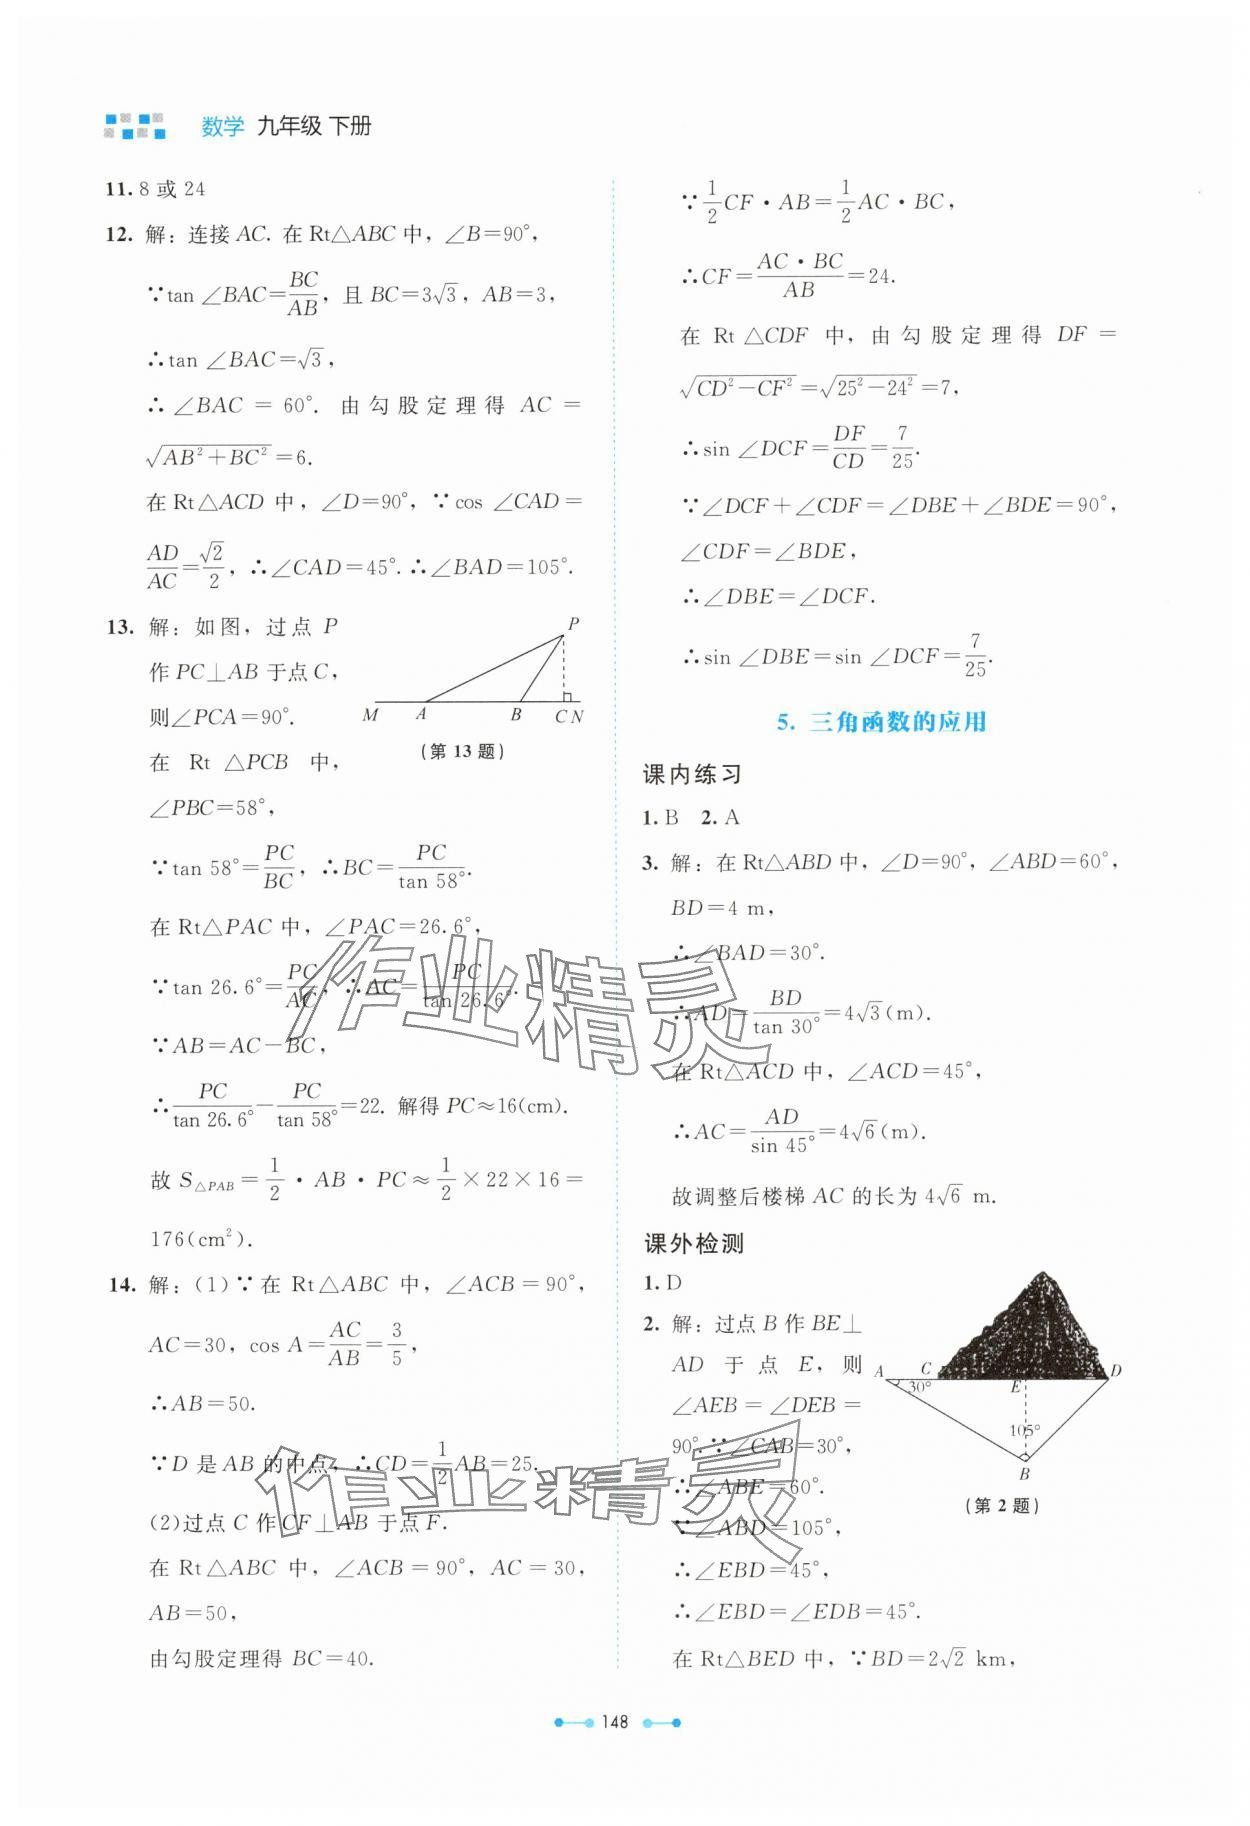 数学 九年级 下册
11. 8 或 24
12. 解：连接 AC. 在 Rt△ABC 中，∠B=90°，
∵tan ∠BAC=BC/AB，且 BC=3√3，AB=3，
∴tan ∠BAC=√3，
∴∠BAC = 60°. 由勾股定理得 AC =
√(AB²+BC²)=6.
在 Rt△ACD 中，∠D=90°，∵cos ∠CAD=
AD/AC=√2/2，∴∠CAD=45°.∴∠BAD=105°.
13. 解：如图，过点 P
作 PC⊥AB 于点 C，
则∠PCA=90°.
在 Rt △PCB 中，
∠PBC=58°，
P
M A B C N
(第 13 题)
∵tan 58°=PC/BC，∴BC=PC/tan 58°.
在 Rt△PAC 中，∠PAC=26.6°，
∵tan 26.6°=PC/AC，∴AC=PC/tan 26.6°.
∵AB=AC−BC，
∴PC/tan 26.6°−PC/tan 58°=22. 解得 PC≈16(cm).
故 S△PAB=1/2·AB·PC≈1/2×22×16=
176(cm²).
14. 解：(1)∵在 Rt△ABC 中，∠ACB=90°，
AC=30，cos A=AC/AB=3/5，
∴AB=50.
∵D 是 AB 的中点，∴CD=1/2AB=25.
(2)过点 C 作 CF⊥AB 于点 F.
在 Rt△ABC 中，∠ACB=90°，AC=30，
AB=50，
由勾股定理得 BC=40.
∵1/2CF·AB=1/2AC·BC，
∴CF=AC·BC/AB=24.
在 Rt △CDF 中，由勾股定理得 DF=
√(CD²−CF²)=√(25²−24²)=7，
∴sin ∠DCF=DF/CD=7/25.
∵∠DCF+∠CDF=∠DBE+∠BDE=90°，
∠CDF=∠BDE，
∴∠DBE=∠DCF.
∴sin ∠DBE=sin ∠DCF=7/25.
5. 三角函数的应用
课内练习
1. B 2. A
3. 解：在 Rt△ABD 中，∠D=90°，∠ABD=60°，
BD=4 m，
∴∠BAD=30°.
∴AD=BD/tan 30°=4√3(m).
在 Rt△ACD 中，∠ACD=45°，
∴AC=AD/sin 45°=4√6(m).
故调整后楼梯 AC 的长为 4√6 m.
课外检测
1. D
2. 解：过点 B 作 BE⊥
AD 于点 E，则
∠AEB=∠DEB=
90°.∵∠CAB=30°，
∴∠ABE=60°.
∵∠ABD=105°，
∴∠EBD=45°，
∴∠EBD=∠EDB=45°.
在 Rt△BED 中，∵BD=2√2 km，
A C E D
30°
105°
B
(第 2 题)
148
作业精灵
作业精灵